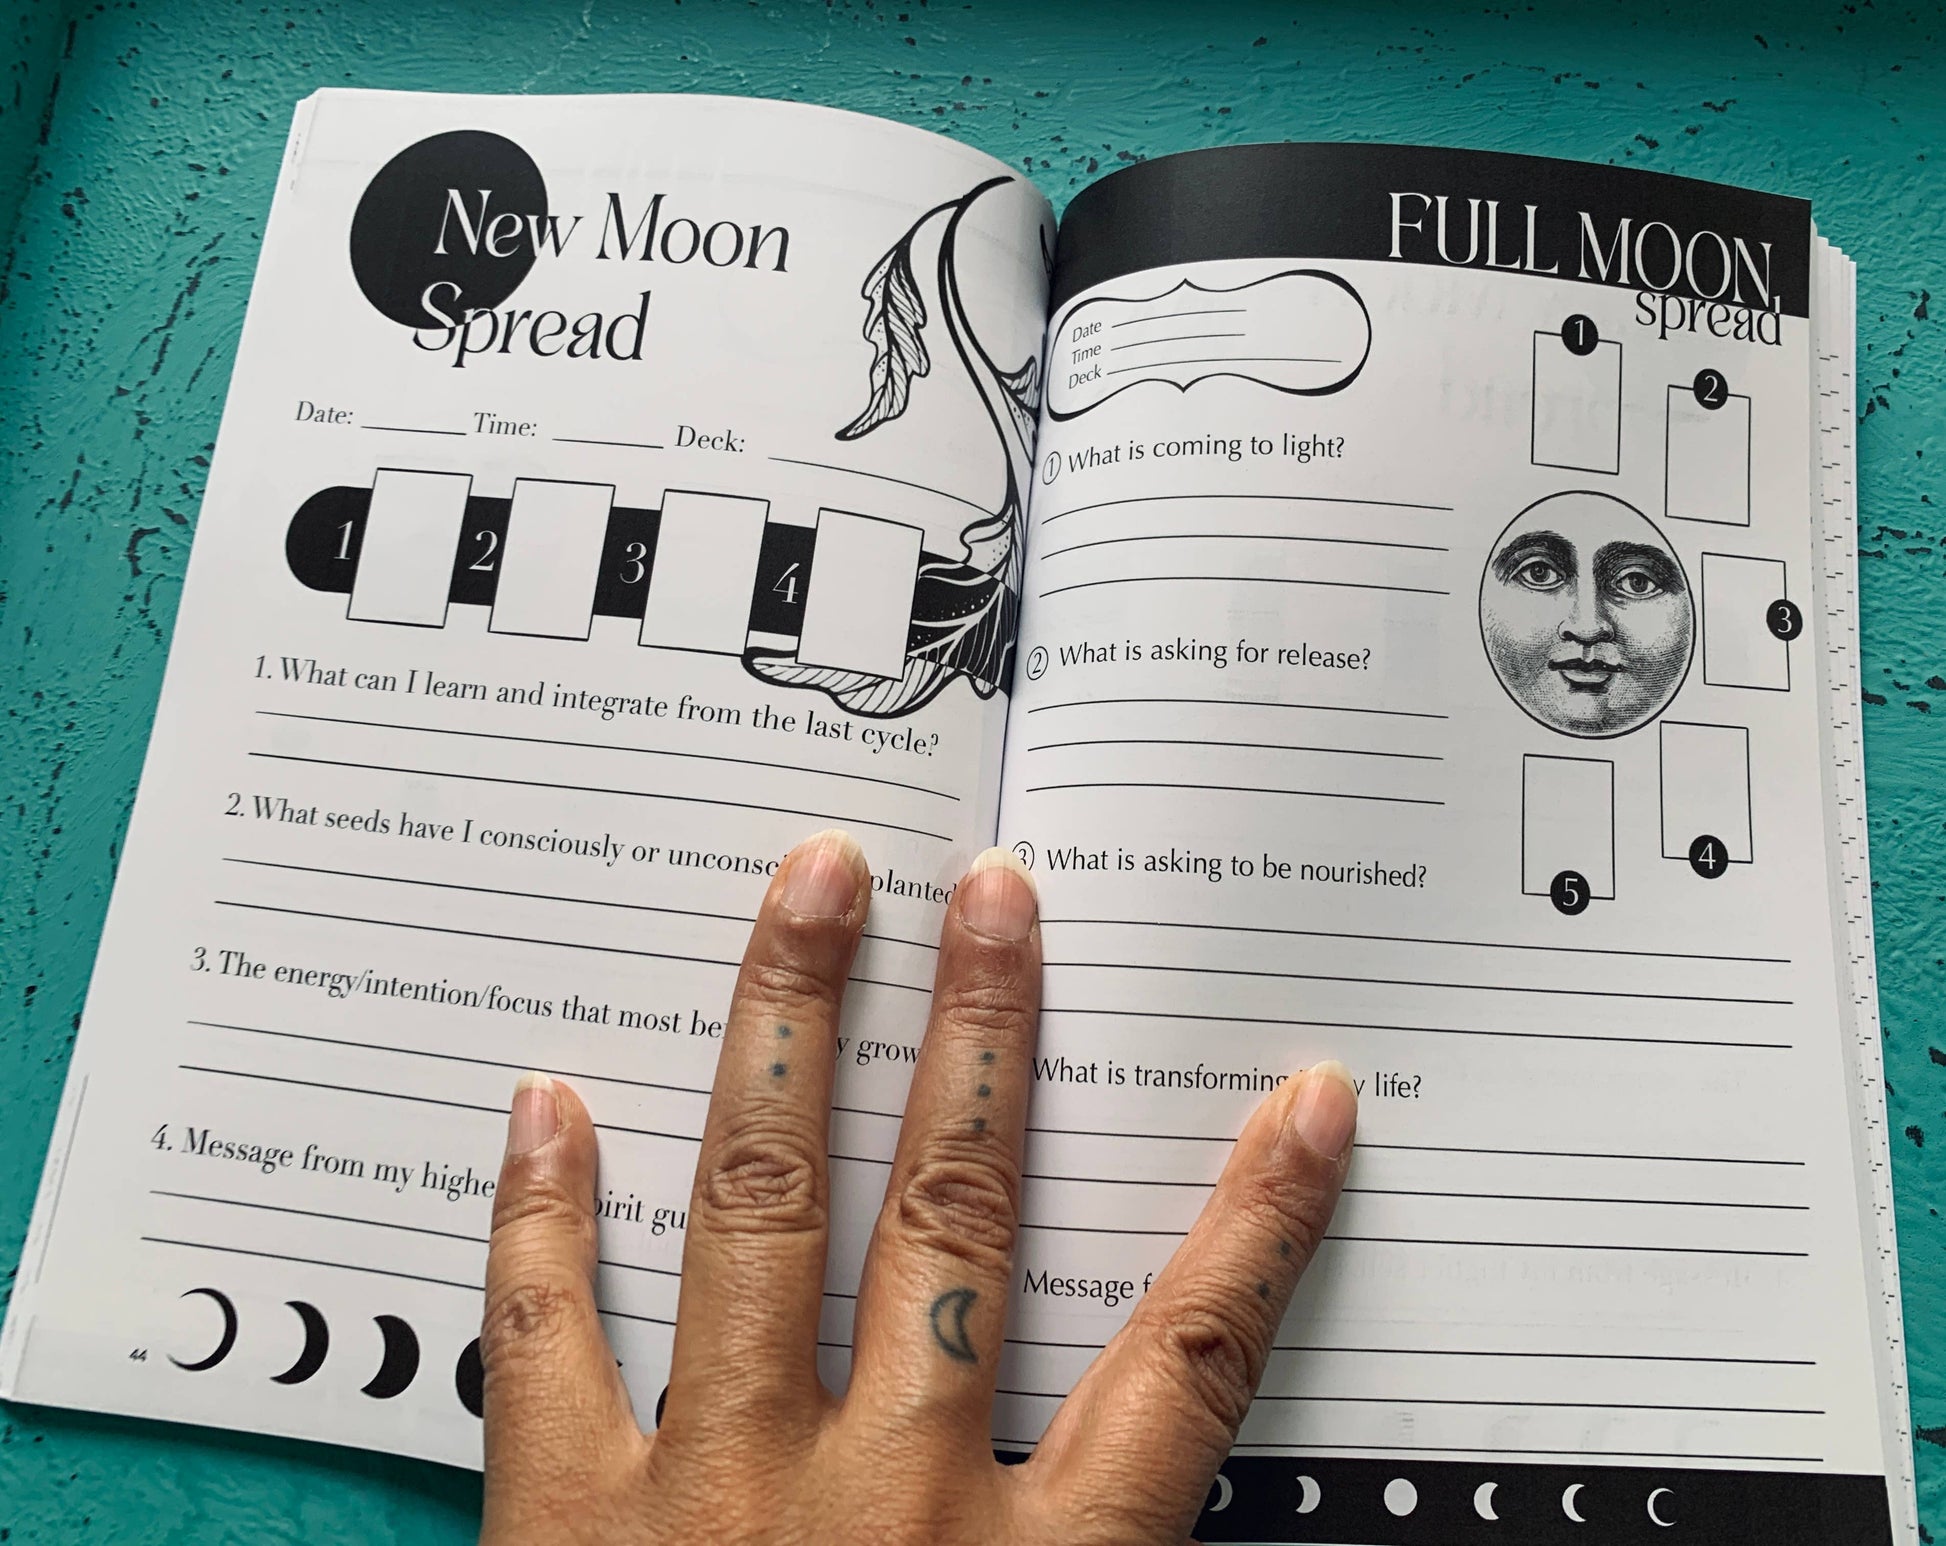 New Moon
Spread
Date: Time: Deck:
1 2 3 4
1. What can I learn and integrate from the last cycle?
2. What seeds have I consciously or planted
3. The energy/intention/focus that most
4. Message from my
44
FULL MOON
spread
Date
Time
Deck
1
2
3
4
5
1 What is coming to light?
2 What is asking for release?
3 What is asking to be nourished?
What is transforming life?
Message